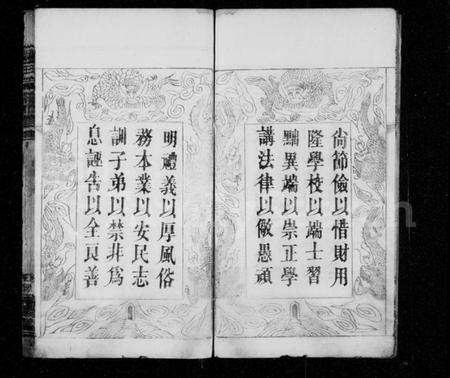 尙節儉以惜財用
隆學校以端士習
黜異端以崇正學
講法律以儆愚頑
明禮義以厚風俗
務本業以安民志
訓子弟以禁非為
息誣告以全良善